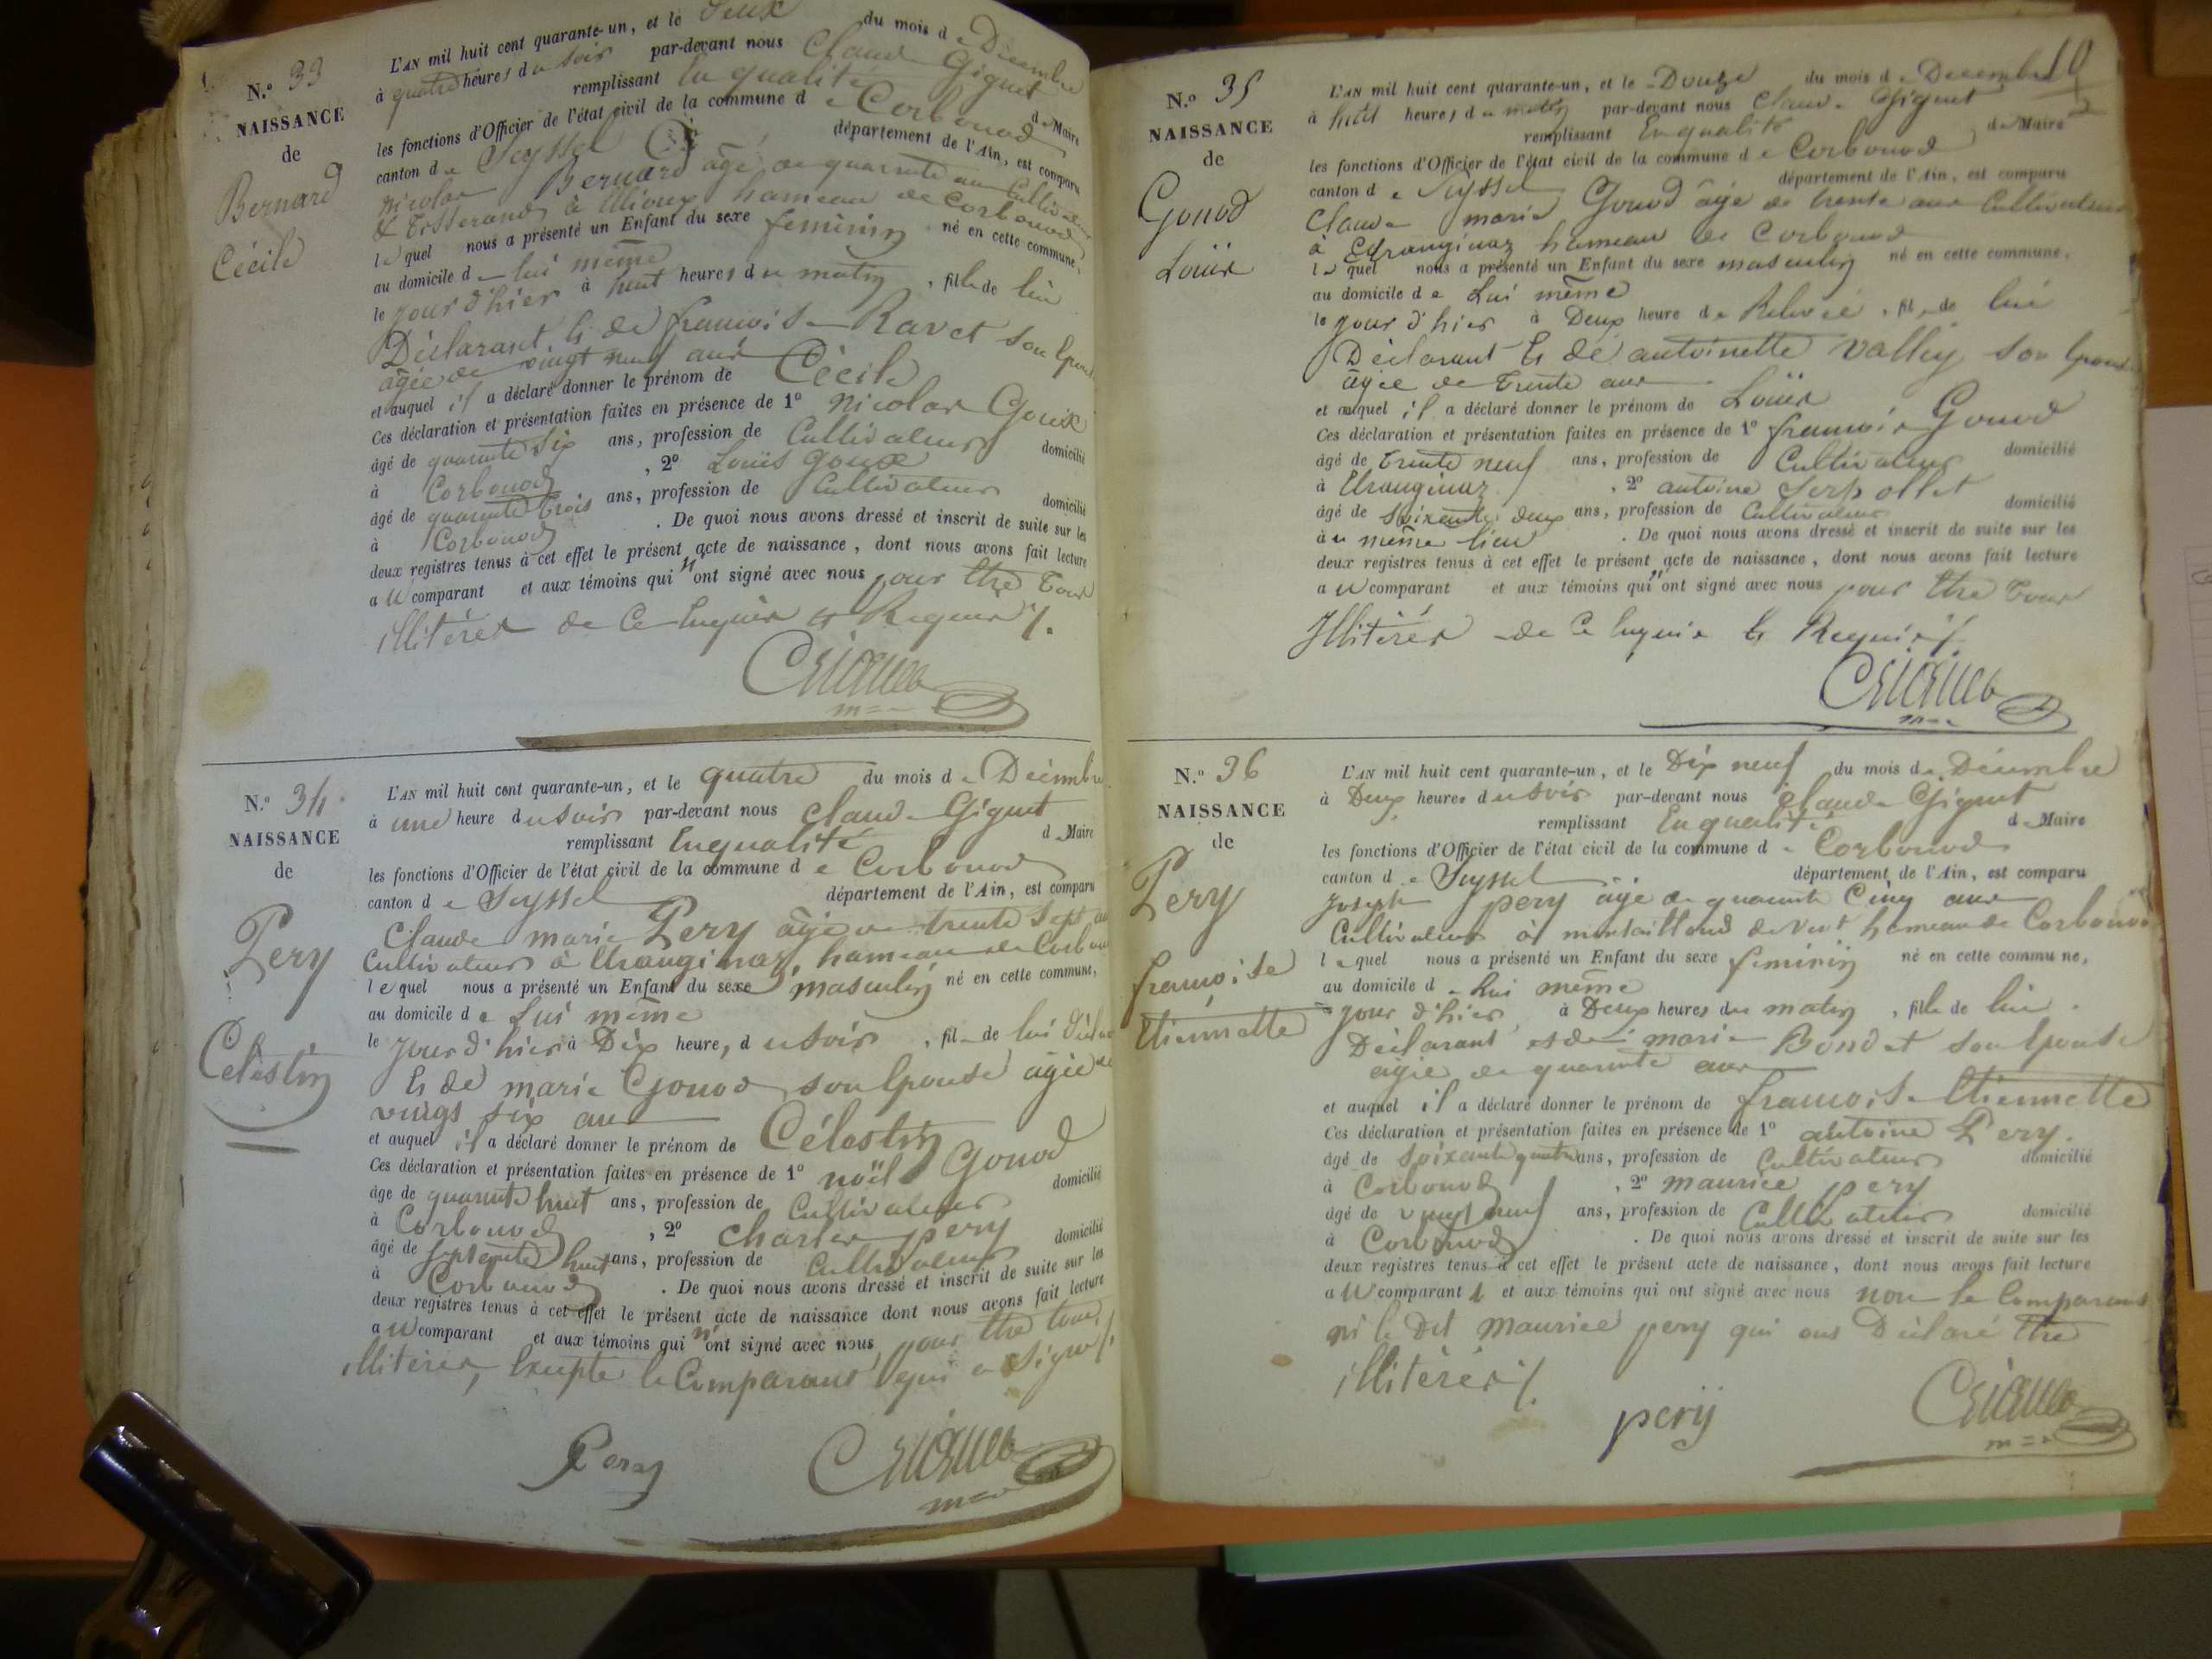 N.º 33
NAISSANCE
de
Bernard
Cécile
L'AN mil huit cent quarante-un, et le Deux du mois de Décembre
à quatre heures du soir par-devant nous Claude Giguet
remplissant En qualité de Maire
les fonctions d'Officier de l'état civil de la commune de Corbonod
canton de Seyssel département de l'Ain, est comparu
nicolas Bernard âgé de quarante ans Cultivateur
& Tisserand à hameau de Corbonod
lequel nous a présenté un Enfant du sexe feminin né en cette commune,
au domicile de lui même
le jour d'hier à huit heures du matin, fille de lui
Déclarant & de francoise Ravet son Epouse
agée de vingt neuf ans
et auquel il a déclaré donner le prénom de Cécile
Ces déclaration et présentation faites en présence de 1º nicolas Goux
âgé de quarante six ans, profession de Cultivateur domicilié
à Corbonod, 2º Louis Goux
âgé de quarante trois ans, profession de Cultivateur domicilié
à Corbonod. De quoi nous avons dressé et inscrit de suite sur les
deux registres tenus à cet effet le présent acte de naissance, dont nous avons fait lecture
au comparant et aux témoins qui n'ont signé avec nous pour être tous
illitérés de ce Enquis & Requis /.
m
N.º 34
NAISSANCE
de
Pery
Célestin
L'AN mil huit cent quarante-un, et le quatre du mois de Décembre
à une heure du soir par-devant nous Claude Giguet
remplissant En qualité de Maire
les fonctions d'Officier de l'état civil de la commune de Corbonod
canton de Seyssel département de l'Ain, est comparu
Claude marie Pery âgé de trente sept ans
Cultivateur à Etranginaz, hameau de Corbonod
lequel nous a présenté un Enfant du sexe masculin né en cette commune,
au domicile de Lui même
le Jour d'hier à Dix heures du soir, fils de lui Déclarant
& de marie Gonod son Epouse agée de
vingt six ans
et auquel il a déclaré donner le prénom de Célestin
Ces déclaration et présentation faites en présence de 1º noël Gonod
âgé de quarante huit ans, profession de Cultivateur domicilié
à Corbonod, 2º Charles pery
âgé de septente huit ans, profession de Cultivateur domicilié
à Corbonod. De quoi nous avons dressé et inscrit de suite sur les
deux registres tenus à cet effet le présent acte de naissance dont nous avons fait lecture
au comparant et aux témoins qui n'ont signé avec nous pour être tous
illitérés, Excepté le Comparant qui a signé /.
Pery
m
10
N.º 35
NAISSANCE
de
Gonod
Loüis
L'AN mil huit cent quarante-un, et le Douze du mois de Decembre
à huit heures du matin par-devant nous Claude Giguet
remplissant En qualité de Maire
les fonctions d'Officier de l'état civil de la commune de Corbonod
canton de Seyssel département de l'Ain, est comparu
Claude marie Gonod âgé de trente ans Cultivateur
à Etranginaz hameau de Corbonod
lequel nous a présenté un Enfant du sexe masculin né en cette commune,
au domicile de Lui même
le jour d'hier à Deux heure de Relevée, fils de lui
Déclarant & de antoinette Valley son Epouse
agée de trente ans
et auquel il a déclaré donner le prénom de Loüis
Ces déclaration et présentation faites en présence de 1º francois Gonod
âgé de trente neuf ans, profession de Cultivateur domicilié
à Etranginaz, 2º antoine Serpollet
âgé de soixante deux ans, profession de Cultivateur domicilié
au même lieu. De quoi nous avons dressé et inscrit de suite sur les
deux registres tenus à cet effet le présent acte de naissance, dont nous avons fait lecture
au comparant et aux témoins qui n'ont signé avec nous pour être tous
Illitérés de ce Enquis & Requis /.
m
N.º 36
NAISSANCE
de
Pery
francoise
Etiennette
L'AN mil huit cent quarante-un, et le Dix neuf du mois de Décembre
à Deux heures du soir par-devant nous Claude Giguet
remplissant En qualité de Maire
les fonctions d'Officier de l'état civil de la commune de Corbonod
canton de Seyssel département de l'Ain, est comparu
Joseph pery âgé de quarante Cinq ans
Cultivateur à hameau de Corbonod
lequel nous a présenté un Enfant du sexe feminin né en cette commune,
au domicile de Lui même
jour d'hier à Deux heures du matin, fille de lui
Déclarant et de marie Bondet son Epouse
agée de quarante ans
et auquel il a déclaré donner le prénom de francoise Etiennette
Ces déclaration et présentation faites en présence de 1º antoine Pery
âgé de soixante quatre ans, profession de Cultivateur domicilié
à Corbonod, 2º maurice pery
âgé de vingt neuf ans, profession de Cultivateur domicilié
à Corbonod. De quoi nous avons dressé et inscrit de suite sur les
deux registres tenus à cet effet le présent acte de naissance, dont nous avons fait lecture
au comparant & et aux témoins qui ont signé avec nous non le Comparant
ni le Dit maurice pery qui ont Déclaré être
illitérés /.
pery
m